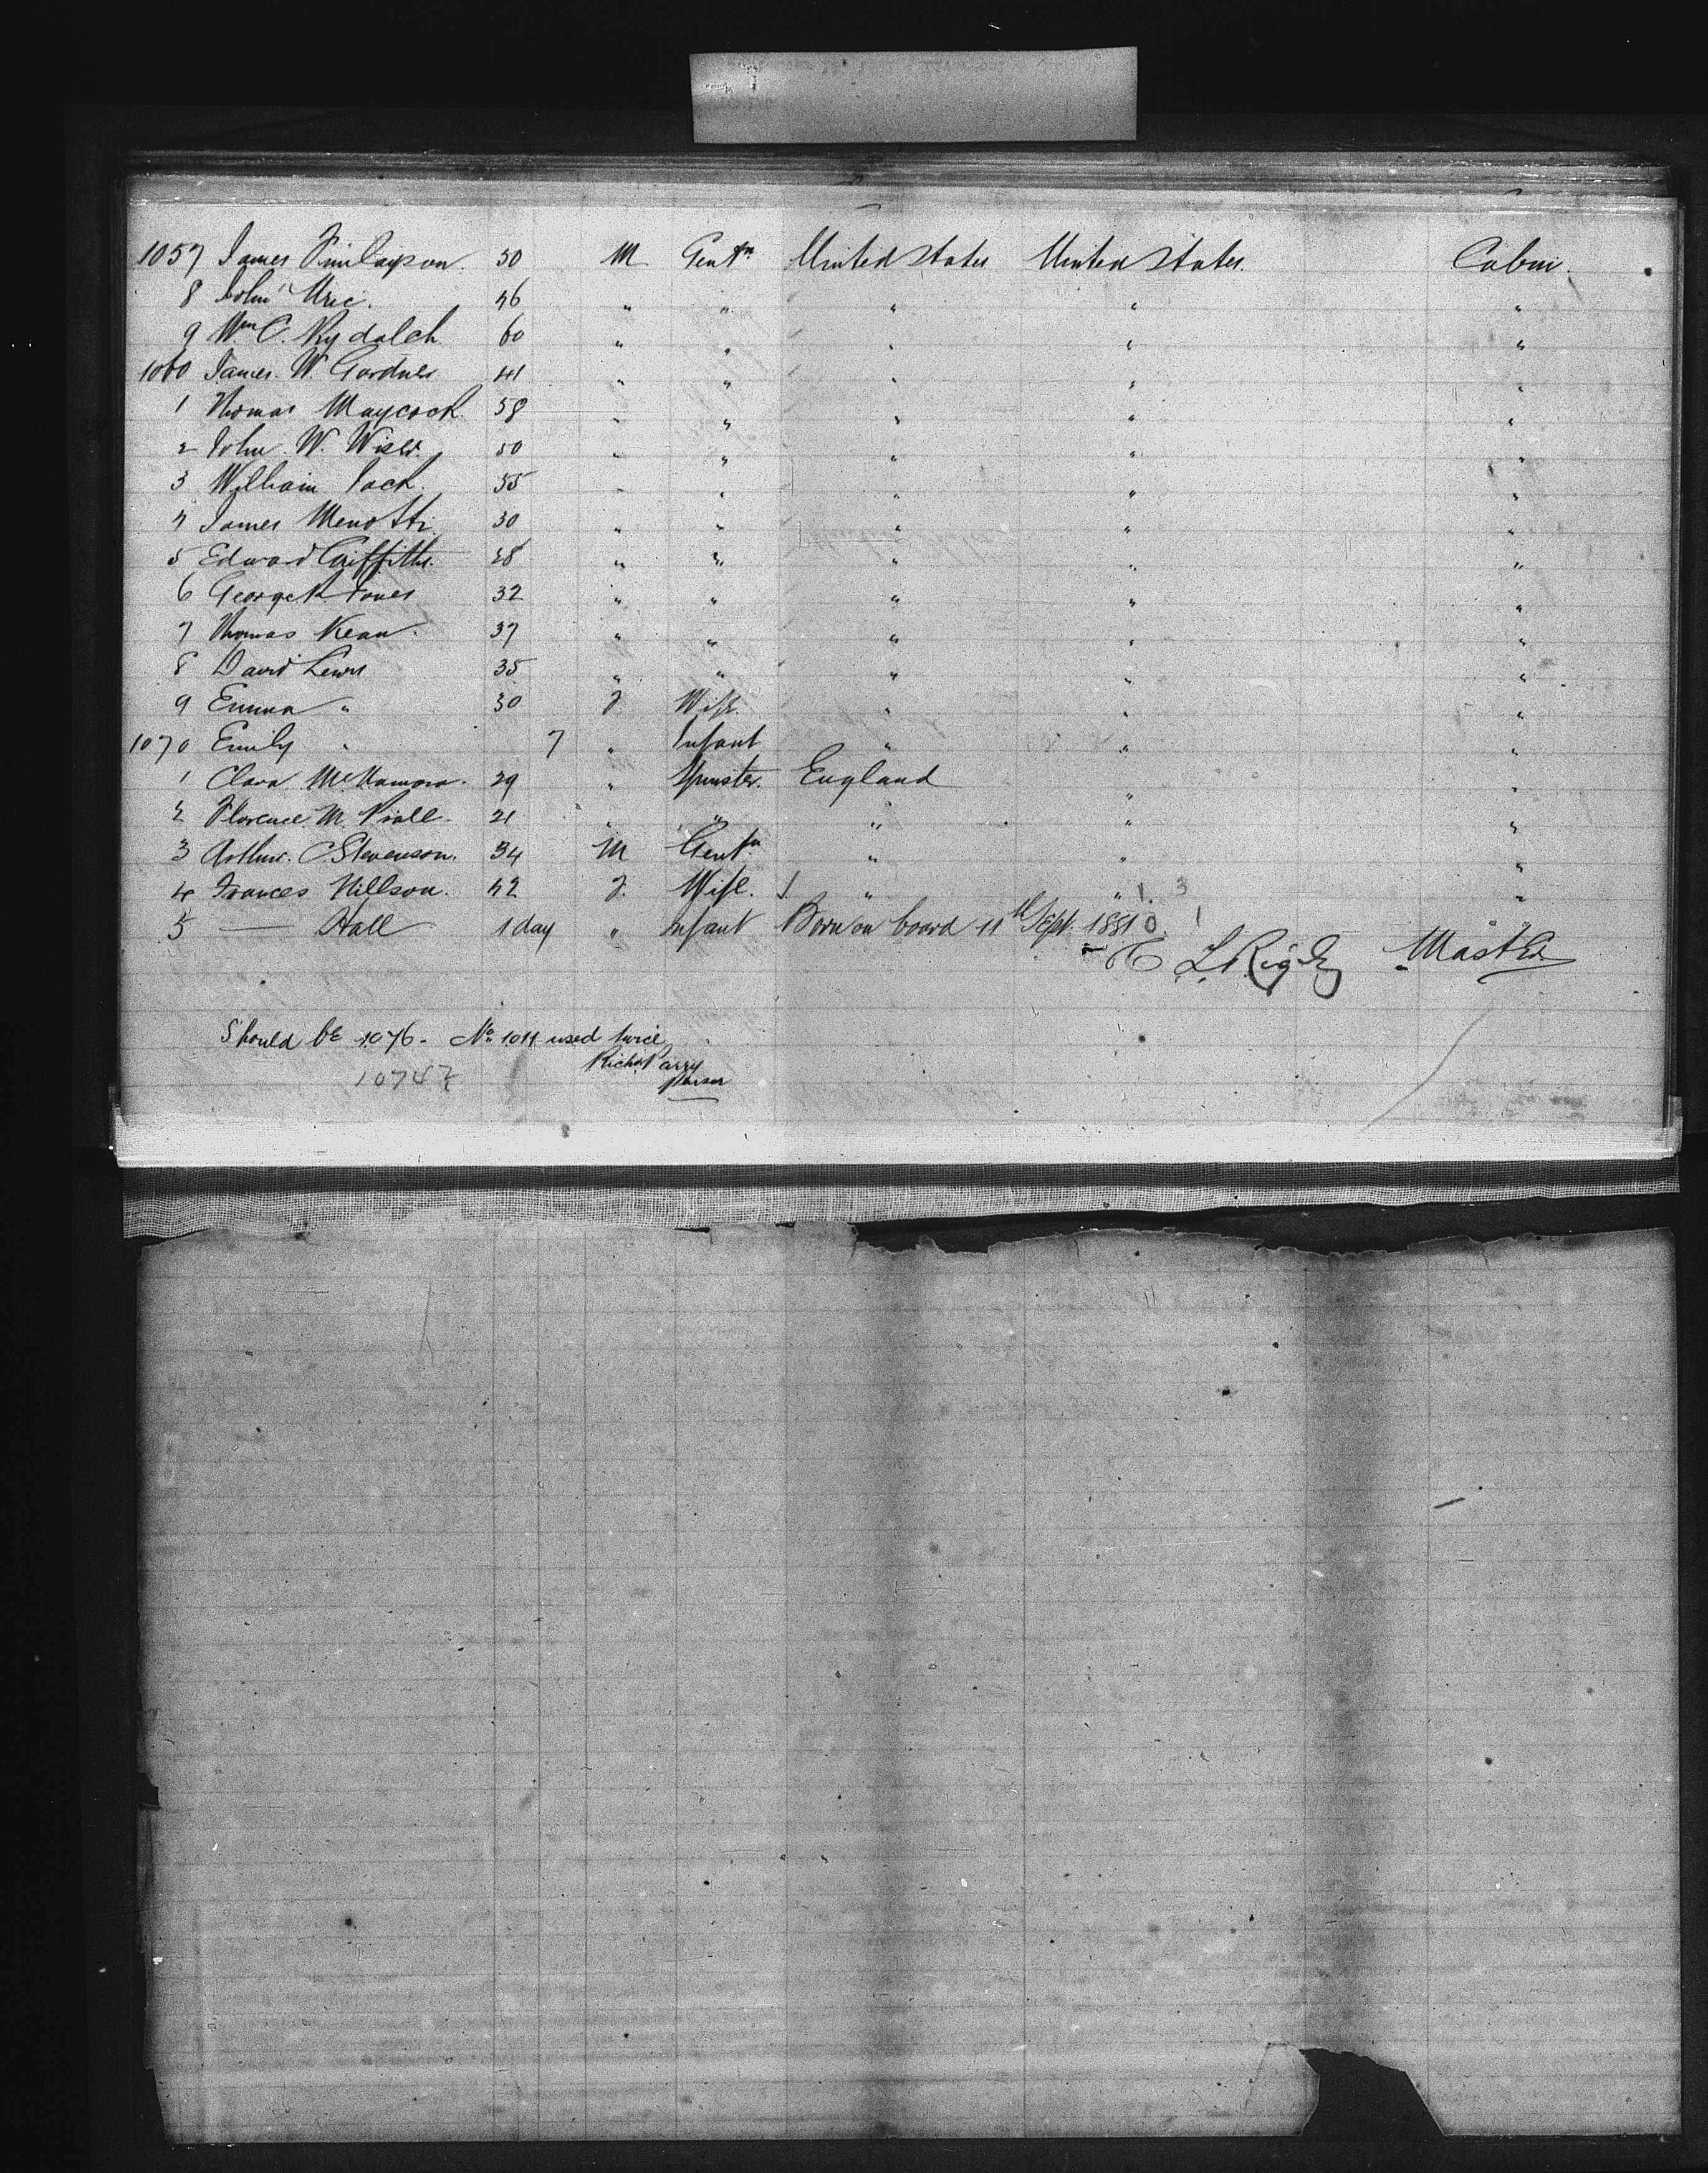 1057 James Finlayson. 50 M Gentn United States United States. Cabin.
8 John Uric. 46 " " " " "
9 Wm C. Rydalch 60 " " " " "
1060 James. W. Gardner 41 " " " " "
1 Thomas Maycock 58 " " " " "
2 John W. 50 " " " " "
3 William Pack. 55 " " " " "
4 James Menotti 30 " " " " "
5 Edward Griffiths. 28 " " " " "
6 George Jones 32 " " " " "
7 Thomas Kean. 37 " " " " "
8 David Lewis 35 " " " " "
9 Emma " 30 F Wife. " " "
1070 Emily " 7 " Infant " " "
1 Clara McNamara. 29 " Spinster. England " "
2 Florence M. 21 " " " " "
3 Arthur. C Stevenson. 34 M Gentn " " "
4 Frances Nillson. 42 F. Wife. " " 1. 3 "
5 — Hall 1 day " Infant Born on board 11th Sept. 1881 0. 1 "
C L Rigby Master
Should be 1076 - No 1011 used twice
Richd Parry
Purser